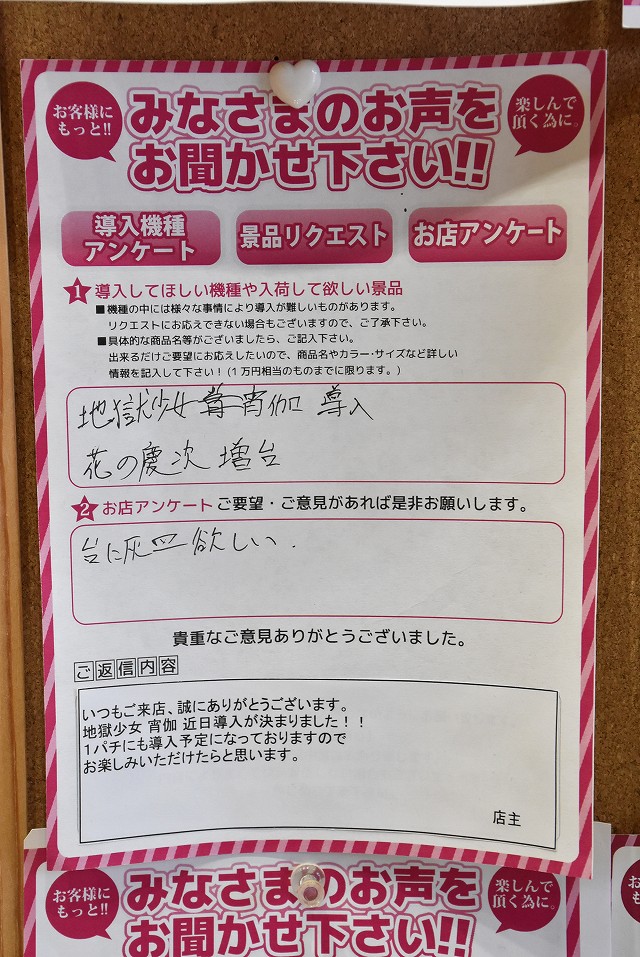 お客様に
もっと!!
みなさまのお声を
お聞かせ下さい!!
楽しんで
頂く為に。
導入機種
アンケート
景品リクエスト
お店アンケート
1 導入してほしい機種や入荷して欲しい景品
■機種の中には様々な事情により導入が難しいものがあります。
リクエストにお応えできない場合もございますので、ご了承下さい。
■具体的な商品名等がございましたら、ご記入下さい。
出来るだけご要望にお応えしたいので、商品名やカラー･サイズなど詳しい
情報を記入して下さい！(１万円相当のものまでに限ります。)
地獄少女 宵伽 導入
花の慶次 増台
2 お店アンケート ご要望・ご意見があれば是非お願いします。
台に灰皿欲しい.
貴重なご意見ありがとうございました。
ご返信内容
いつもご来店、誠にありがとうございます。
地獄少女 宵伽 近日導入が決まりました！！
１パチにも導入予定になっておりますので
お楽しみいただけたらと思います。
店主
お客様に
もっと!!
みなさまのお声を
お聞かせ下さい!!
楽しんで
頂く為に。